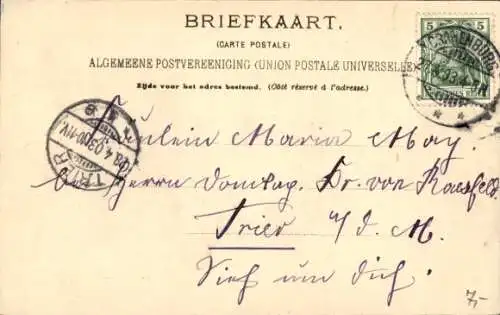 BRIEFKAART.
(CARTE POSTALE)
ALGEMEENE POSTVEREENIGING (UNION POSTALE UNIVERSELLE)
Zijde voor het adres bestemd. (Côté réservé à l'adresse.)
5 5
TRIER
Fräulein Maria May
bei Herrn Domkap. Dr. von Raesfeld.
Trier a/d. M.
Sieh um Dich!
7,-